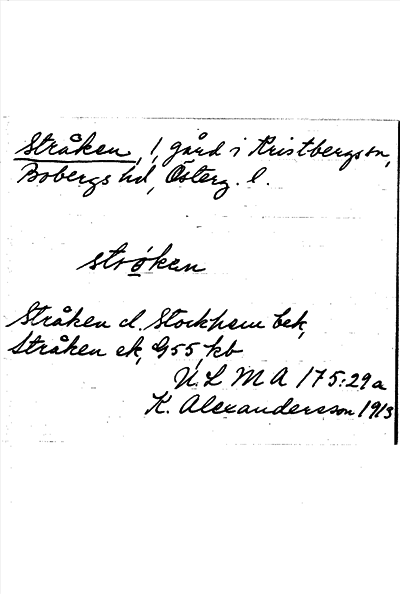 Stråken, 1, gård i Kristbergs sn,
Bobergs hd, Österg. l.
strǿken
Stråken el. Stockhem bek,
Stråken ek, G55, kb
ULMA 175:29a
K. Alexandersson 1913